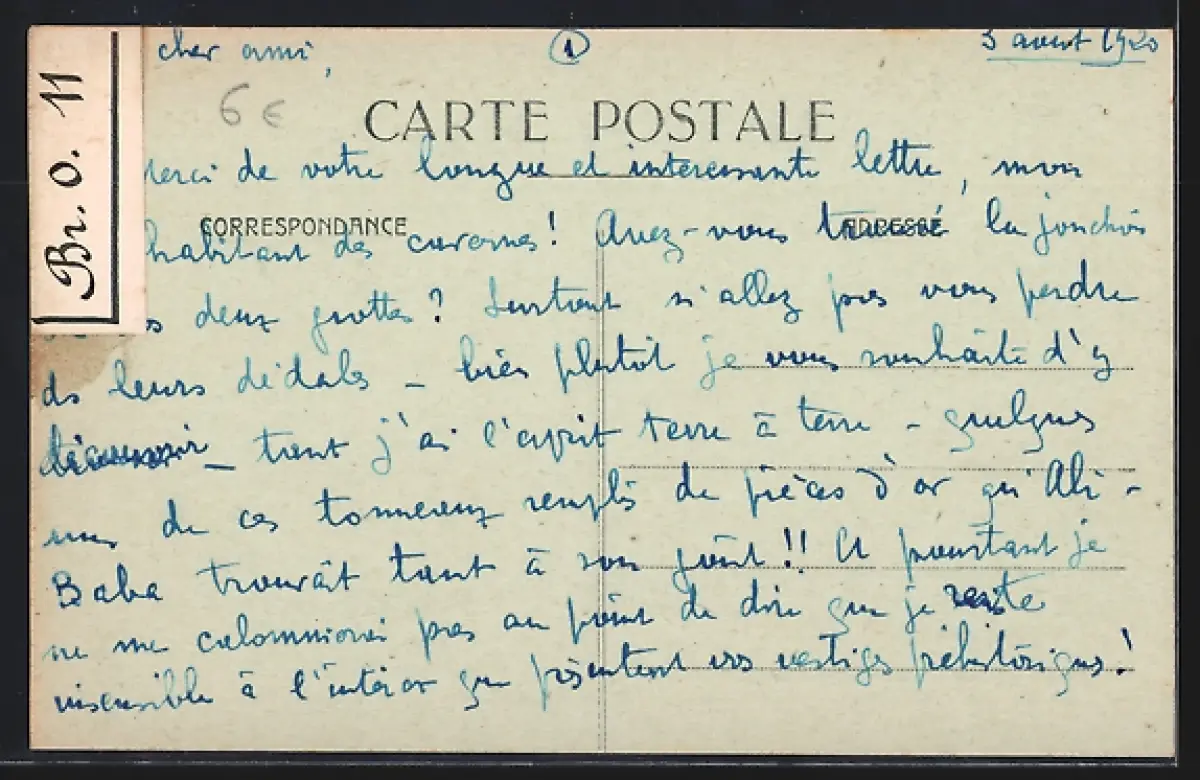 Br. O. 11
cher ami,
1
3 avril 1920
6 €
CARTE POSTALE
merci de votre longue et intéressante lettre, mon
CORRESPONDANCE
ADRESSE
habitant des cavernes! Avez-vous trouvé la jonction
deux grottes? Surtout n'allez pas vous perdre
ds leurs dédales – bien plutôt je vous souhaite d'y
découvrir – tant j'ai l'esprit terre à terre – quelques
uns de ces tonneaux remplis de pièces d'or qu'Ali-
Baba trouvait tant à son goût!! Et pourtant je
ne me calomnierai pas au point de dire que je reste
insensible à l'intérêt que présentent vos vestiges préhistoriques!